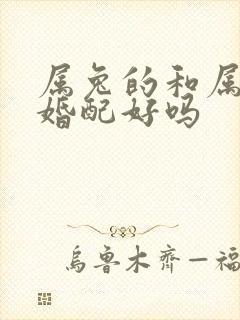 属兔的和属
婚配好吗
乌鲁木齐—福